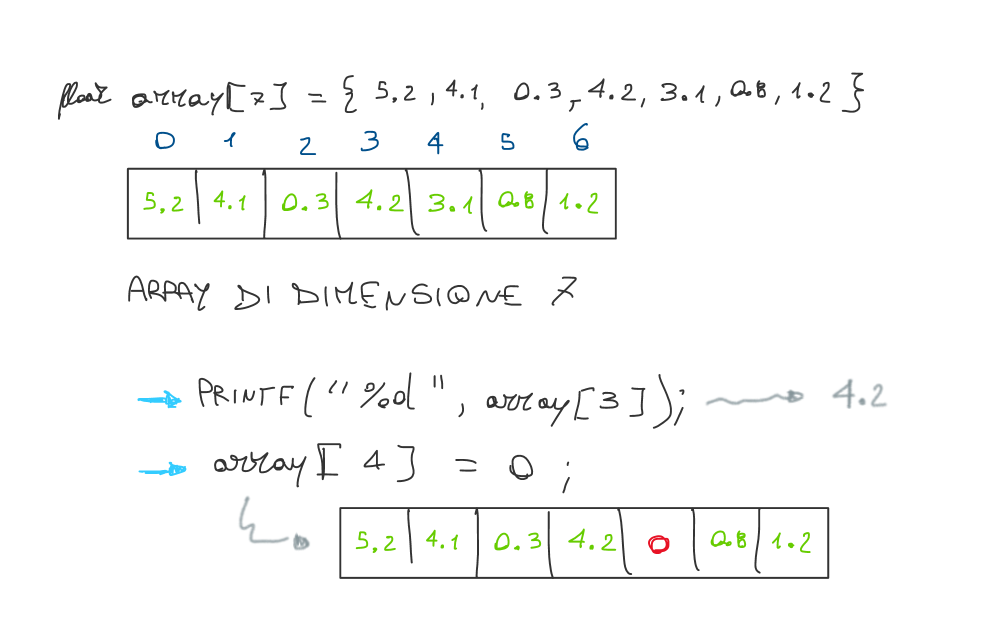 float array[7] = { 5,2, 4.1, 0.3, 4.2, 3.1, 0.8, 1.2 }
0 1 2 3 4 5 6
5,2 4.1 0.3 4.2 3.1 0.8 1.2
ARRAY DI DIMENSIONE 7
PRINTF("%d", array[3]); 4.2
array[4] = 0;
5,2 4.1 0.3 4.2 0 0.8 1.2